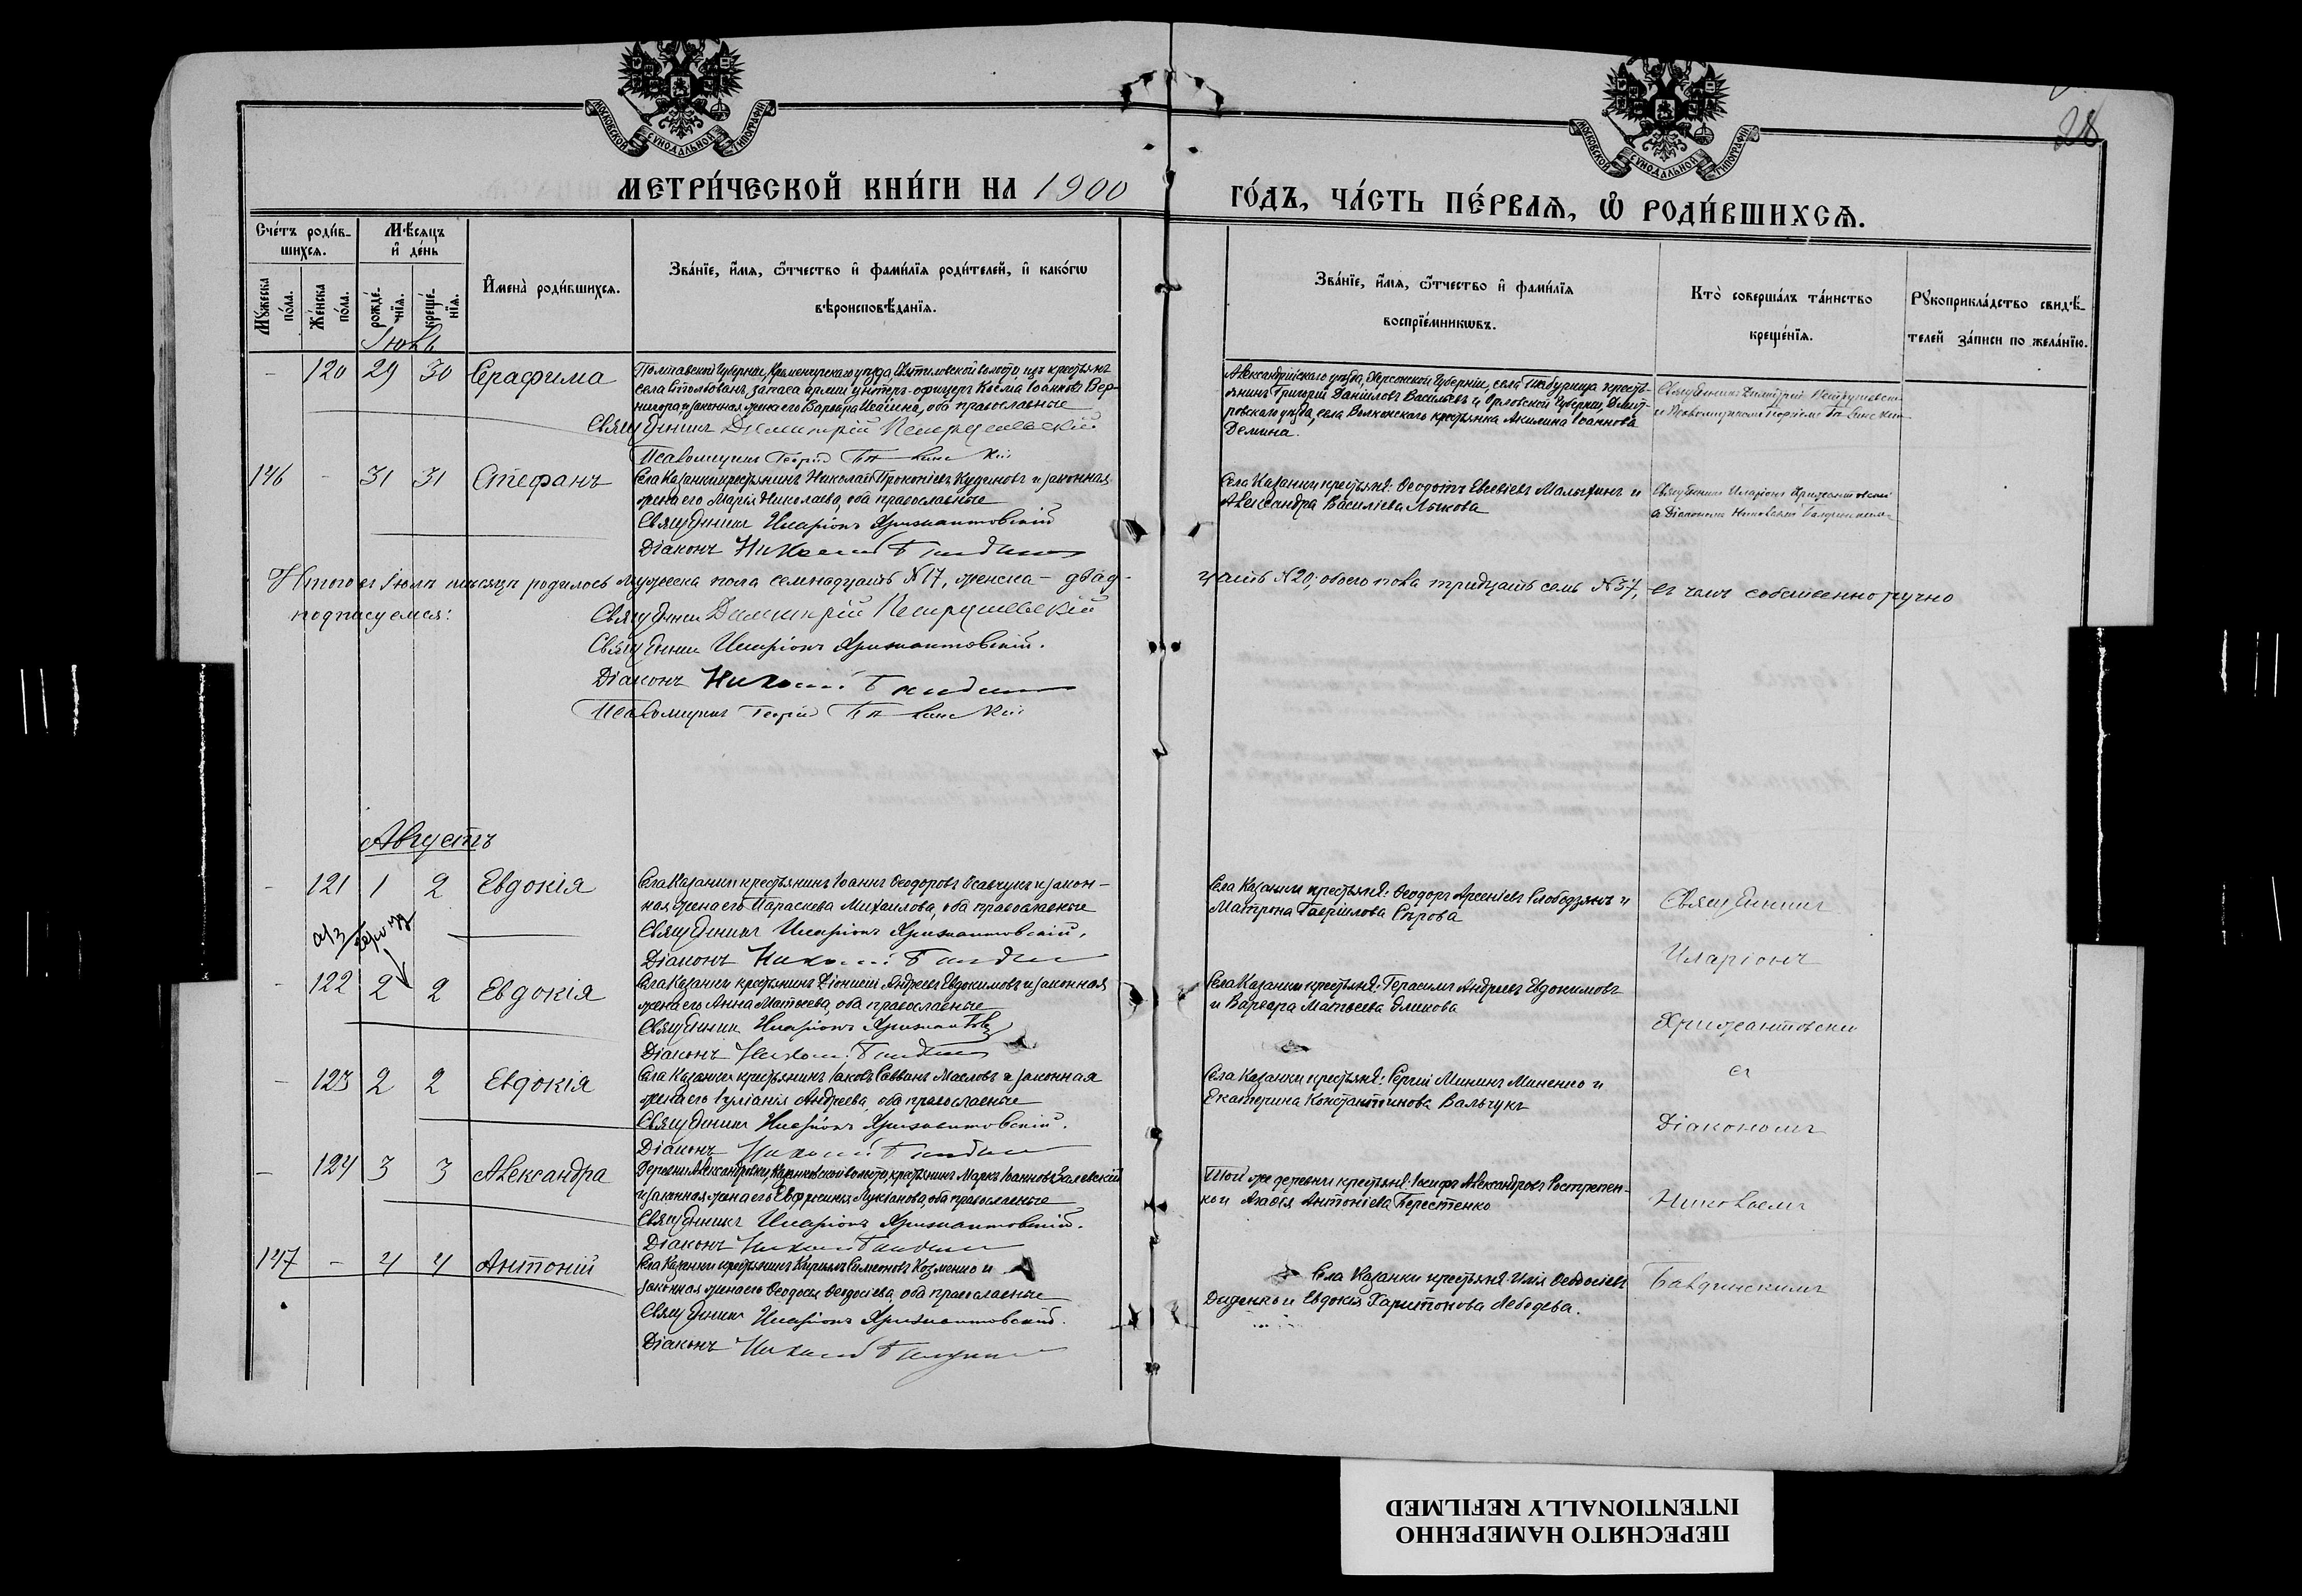 МОСКОВСКОЙ СѴНОДАЛЬНОЙ ТИПОГРАФІИ
МОСКОВСКОЙ СѴНОДАЛЬНОЙ ТИПОГРАФІИ
28
МЕТРИ́ЧЕСКОЙ КНИ́ГИ НА 1900
ГО́ДЪ, ЧА́СТЬ ПЕ́РВАѦ, Ѡ҆ РОДИ́ВШИХСѦ.
Сче́тъ роди́в-
шихсѧ.
Мѣ́сѧцъ
и҆ де́нь
Мꙋ́жеска
по́ла.
Же́нска
по́ла.
рожде́-
нїѧ.
креще́-
нїѧ.
И҆мена̀ роди́вшихсѧ.
Зва́нїе, и҆́мѧ, ѻ҆́тчество и҆ фами́лїѧ роди́телей, и҆ како́гѡ
вѣроисповѣ́данїѧ.
Зва́нїе, и҆́мѧ, ѻ҆́тчество и҆ фами́лїѧ
воспрїе́мникѡвъ.
Кто̀ соверша́лъ та́инство
креще́нїѧ.
Рꙋкоприкла́дство свидѣ́-
телей за́писи по жела́нїю.
Іюль
- 120 29 30 Серафима
Полтавской Губерніи, Кременчугскаго уѣзда, волости, изъ крестьянъ
села запаса арміи унтеръ-офицеръ Косма Іоанновъ Вер-
нигора и законная жена его Варвара Исаіина, оба православные
Священникъ Димитрій Петрушевскій
Псаломщикъ Георгій
Александрійскаго уѣзда, Херсонской Губерніи, села Табурища кресть-
янинъ Григорій Даніиловъ Васильевъ и Орловской Губерніи, Дмит-
ровскаго уѣзда, села Волконскаго крестьянка Акилина Іоаннова
Демина.
Священникъ Димитрій Петрушевскій
и Псаломщикомъ Георгіемъ
146 - 31 31 Стефанъ
Села Казанки крестьянинъ Николай Прокопіевъ Кудиновъ и законная
жена его Марія Николаева, оба православные
Священникъ Иларіонъ Хрисантовскій
Діаконъ Николай
Села Казанки крестьяне: Ѳеодотъ Евсевіевъ Малыхинъ и
Александра Василіева Лыкова
Священникъ Иларіонъ Хрисантовскій
съ Діакономъ Николаемъ
Итого въ Іюлѣ мѣсяцѣ родилось мужеска пола семнадцать №17, женска - двад-
цать №20, обоего пола тридцать семь №37, въ чемъ собственноручно
подписуемся:
Священникъ Димитрій Петрушевскій
Священникъ Иларіонъ Хрисантовскій.
Діаконъ Николай
Псаломщикъ Георгій
Августъ
- 121 1 2 Евдокія
Села Казанки крестьянинъ Іоаннъ Ѳеодоровъ Исавчукъ и закон-
ная жена его Параскева Михаилова, оба православные
Священникъ Иларіонъ Хрисантовскій,
Діаконъ Николай
Села Казанки крестьяне: Ѳеодоръ Арсеніевъ Слободзянъ и
Матрона Гавріилова Сѣрова
Священникъ
Иларіонъ
- 122 2 2 Евдокія
Села Казанки крестьянинъ Діонисій Андреевъ Евдокимовъ и законная
жена его Анна Матѳеева, оба православные
Священникъ Иларіонъ
Діаконъ
Села Казанки крестьяне: Герасимъ Андреевъ Евдокимовъ
и Варвара Матѳеева
Хрисантовскій
съ
- 123 2 2 Евдокія
Села Казанки крестьянинъ Іаковъ Саввинъ Масловъ и законная
жена его Іуліанія Андреева, оба православные
Священникъ Иларіонъ Хрисантовскій.
Діаконъ Николай
Села Казанки крестьяне: Сергій Мининъ Миненко и
Екатерина Константинова Вальчукъ
Діакономъ
- 124 3 3 Александра
Деревни Александровки, волости, крестьянинъ Маркъ Іоанновъ Залевскій
и законная жена его Евфросинія Лукіанова, оба православные
Священникъ Иларіонъ Хрисантовскій.
Діаконъ Николай
Той же деревни крестьяне: Іосифъ Александровъ Костре́пен-
ко и Агаѳія Антоніева Берестенко
Николаемъ
147 - 4 4 Антоній
Села Казанки крестьянинъ Кириллъ Симеоновъ Козменко и
законная жена его Ѳеодосія Ѳеодосіева, оба православные
Священникъ Иларіонъ Хрисантовскій.
Діаконъ Николай
Села Казанки крестьяне: Илія Ѳеодосіевъ
Диденко и Евдокія Харитонова Лебедева.
ПЕРЕСНЯТО НАМЕРЕННО
INTENTIONALLY REFILMED